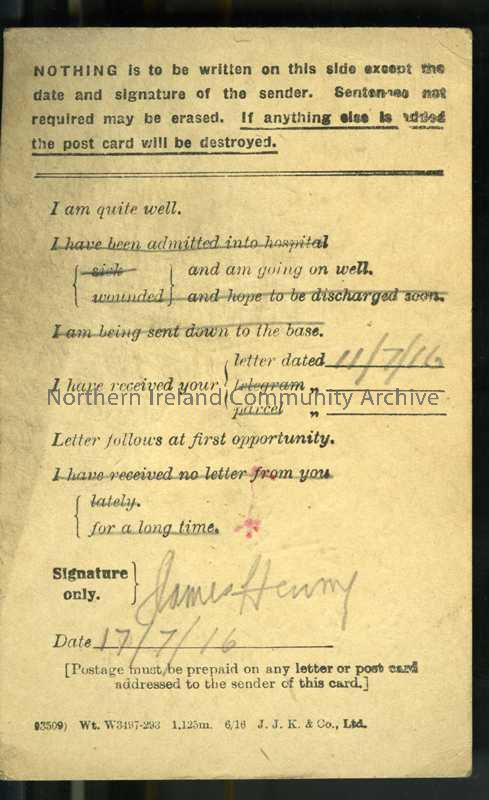 NOTHING is to be written on this side except the
date and signature of the sender. Sentences not
required may be erased. If anything else is added
the post card will be destroyed.
I am quite well.
I have been admitted into hospital
sick } and am going on well.
wounded } and hope to be discharged soon.
I am being sent down to the base.
letter dated 11/7/16
I have received your { telegram „
parcel „
Northern Ireland Community Archive
Letter follows at first opportunity.
I have received no letter from you
{ lately.
for a long time.
Signature
only. } James Henry
Date 17/7/16
[Postage must be prepaid on any letter or post card
addressed to the sender of this card.]
93509) Wt. W3497-293 1,125m. 6/16 J. J. K. & Co., Ltd.